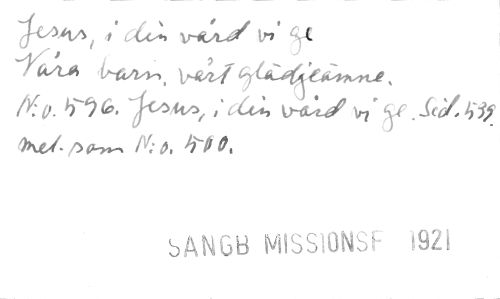 Jesus, i din vård vi ge
Våra barn, vårt glädjeämne.
N:o. 596. Jesus, i din vård vi ge. Sid. 539.
mel. som N:o. 500.
SANGB MISSIONSF 1921